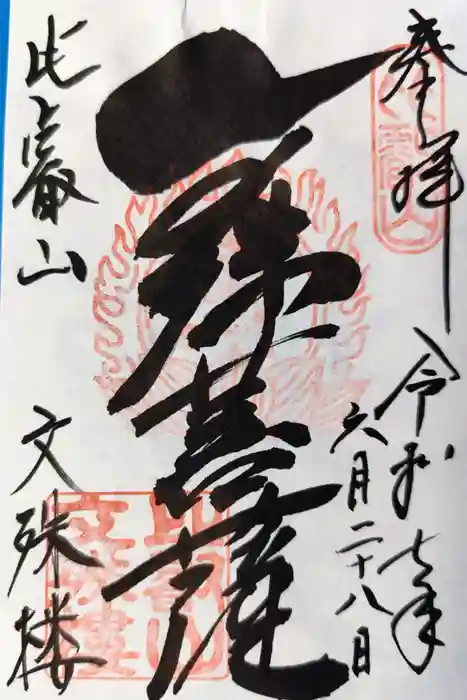 奉拝
令和七年
六月二十八日
文殊菩薩
比叡山
文殊楼